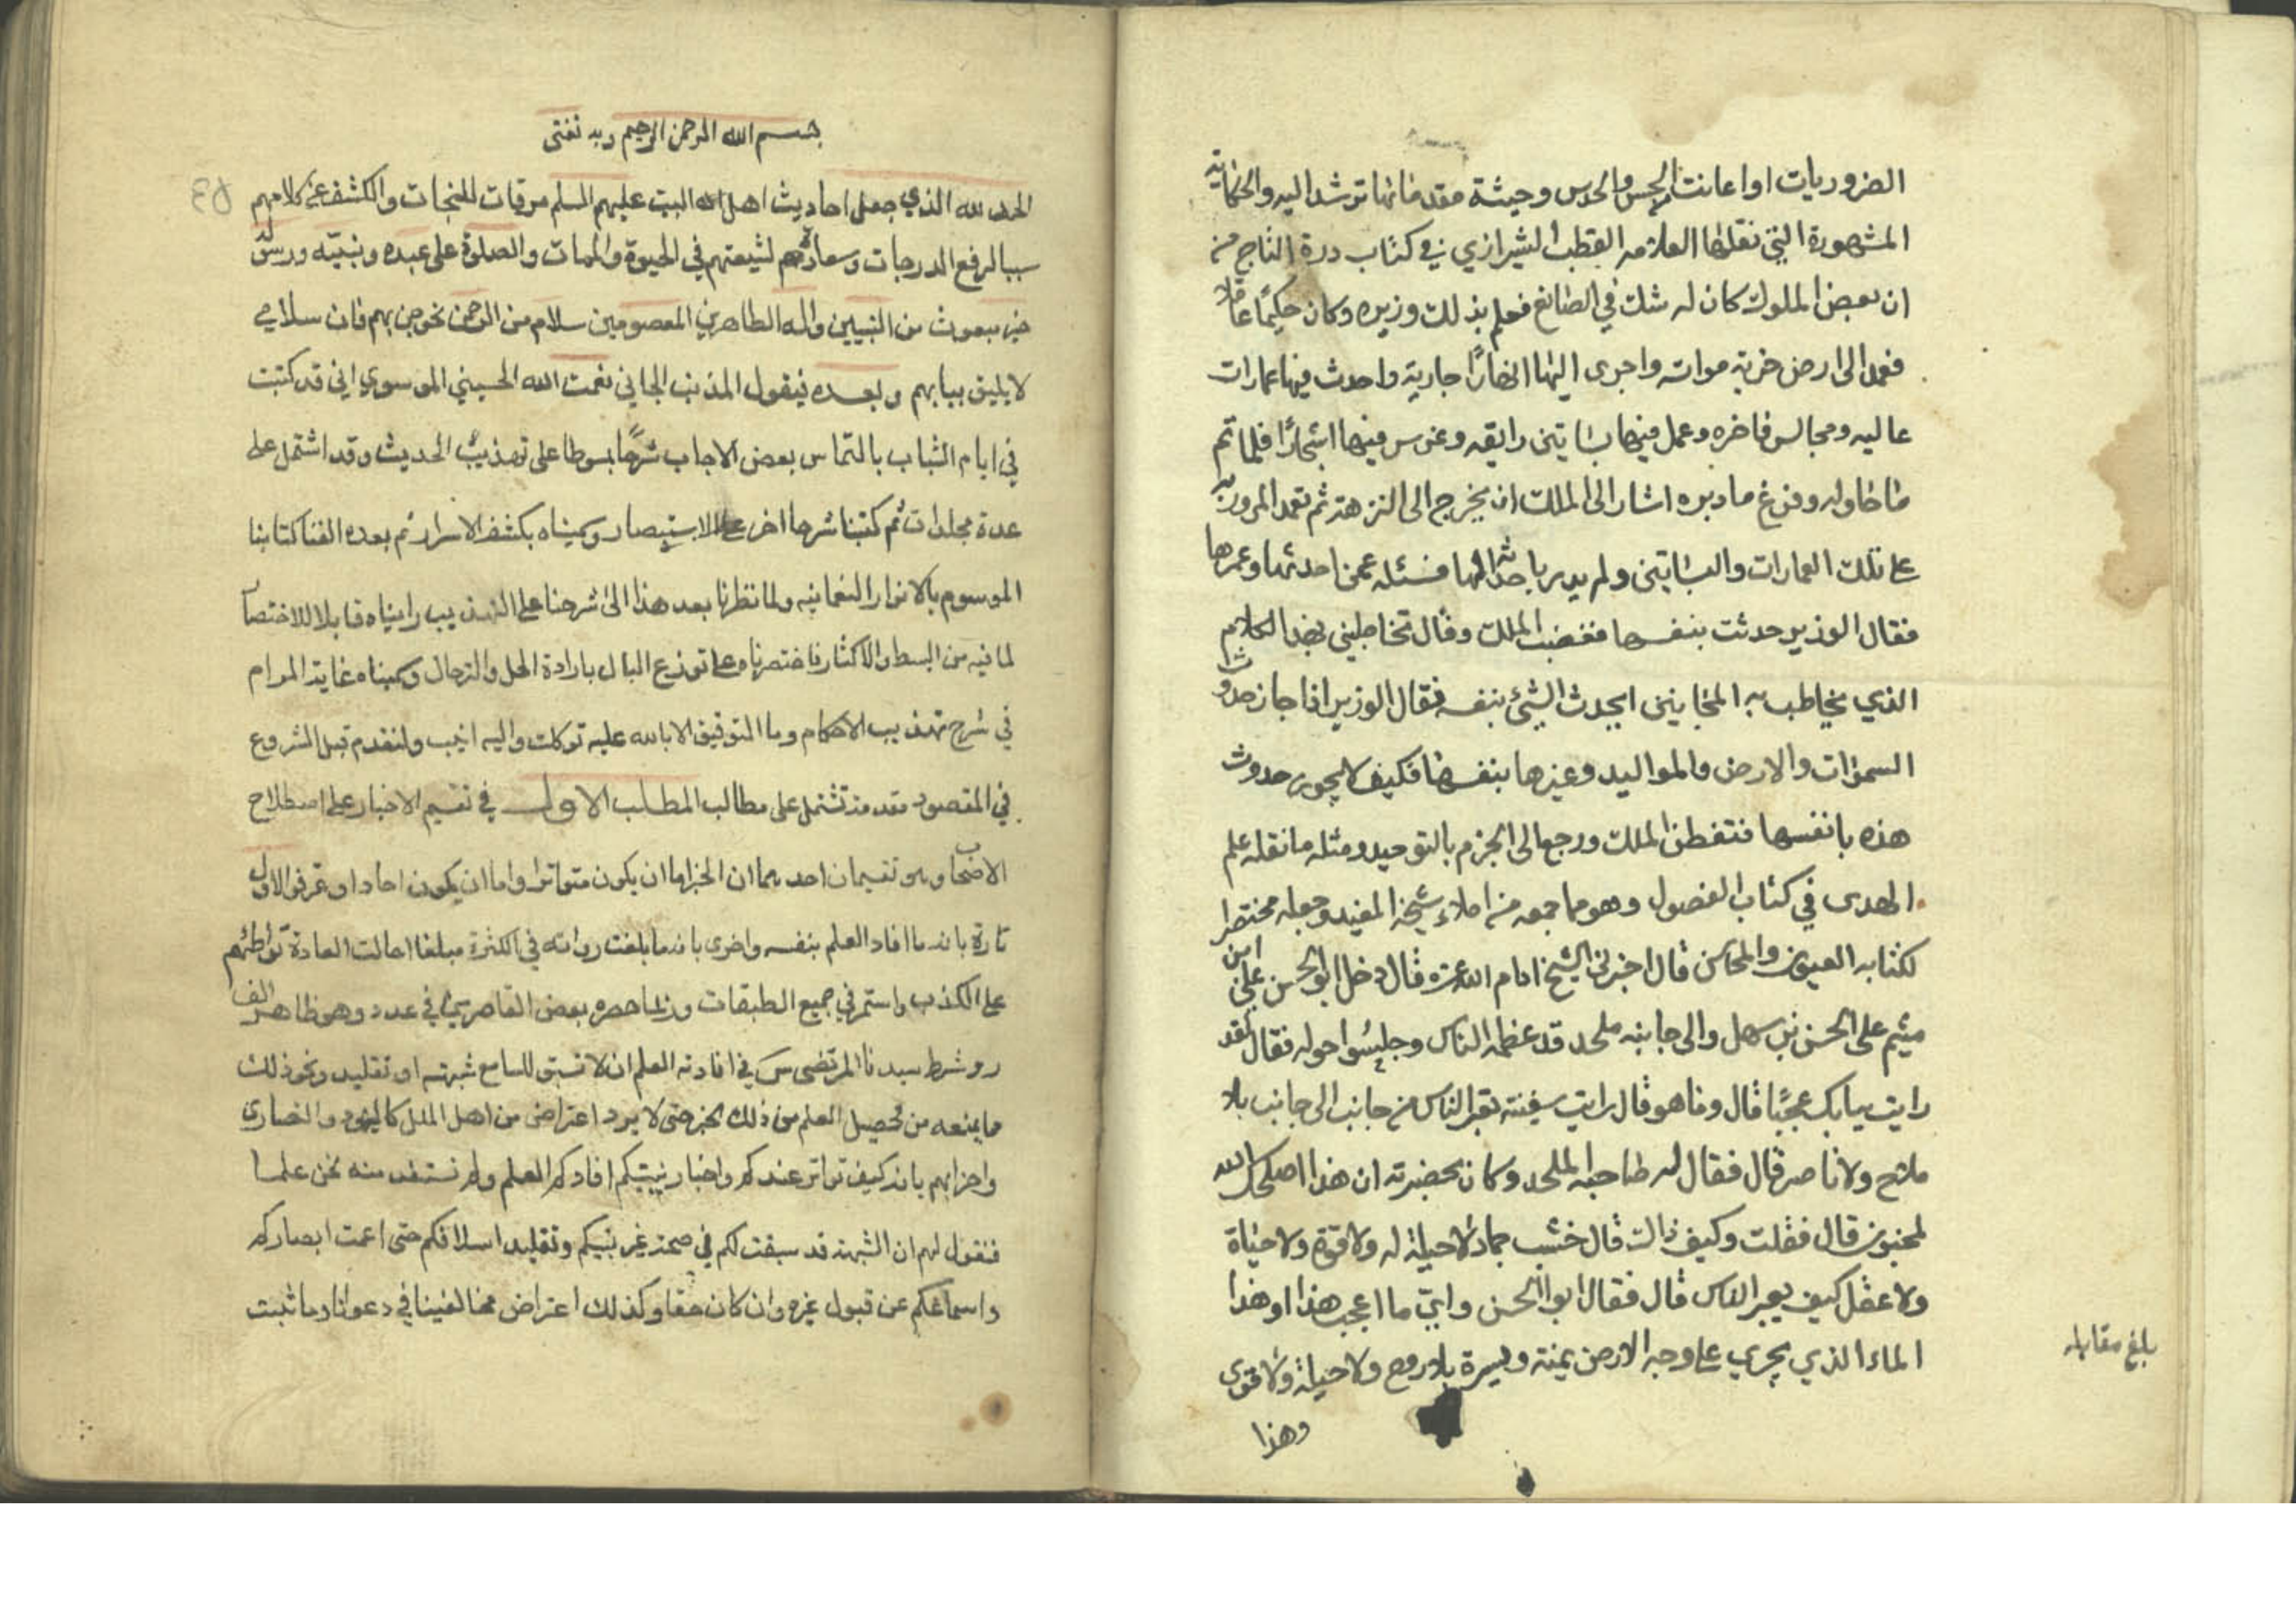 الضروريات او اعانت الحس والحدس وحيثة مقدماتها ترشد اليه والحكاية
المشهورة التي نقلها العلامه القطب الشيرازي في كتاب درة التاج من
ان بعض الملوك كان له شك في الصانع فعلم بذلك وزيره وكان حكيمًا عاقلا
فعمد الى ارض خربة موات واجرى اليها انهارًا جارية واحدث فيها عمارات
عاليه ومجالس فاخره وعمل فيها بساتين رايقه وغرس فيها اشجارًا فلما تم
ما حاوله وفرغ ما دبره اشار الى الملك ان يخرج الى النزهة ثم تعمد المرور به
على تلك العمارات والبساتين ولم يدر باحداثها فسئله عمن احدثها وعمرها
فقال الوزير حدثت بنفسها فغضب الملك وقال تخاطبني بهذا الكلام
الذي يخاطب به المجانين ايحدث الشيئ بنفسه فقال الوزير اذا جاز حدوث
السموات والارض والمواليد وغيرها بنفسها فكيف لا يجوز حدوث
هذه بانفسها فتفطن الملك ورجع الى الجزم بالتوحيد ومثله ما نقله علم
الهدى في كتاب الفصول وهو مما جمعه من املاء شيخه المفيد وجعله مختصرا
لكتابه العيون والمحاسن قال اخبرني الشيخ ادام الله عزه قال دخل ابو الحسن علي ابن
ميثم على الحسن بن سهل والى جانبه ملحد قد عظمه الناس وجلسوا حوله فقال لقد
رايت ببابك عجبًا قال وما هو قال رايت سفينة تعبر الناس من جانب الى جانب بلا
ملاح ولا ناصر قال فقال له صاحبه الملحد وكان بحضرته ان هذا اصلحك الله
لمجنون قال فقلت وكيف ذالك قال خشب جماد لا حيلة له ولا قوة ولا حياة
ولا عقل كيف يعبر الناس قال فقال ابو الحسن وايّ ما اعجب هذا او هذا
الماء الذي يجري على وجه الارض يمنة ويسرة بلا روح ولا حيلة ولا قوى
وهذا
بلغ مقابله
بسم الله الرحمن الرحيم وبه ثقتى
الحمد لله الذي جعل احاديث اهل الله البيت عليهم السلم مرقات للنجات والكشف عن كلامهم
سببا لرفع الدرجات وسعادتهم لشيعتهم في الحيوة والممات والصلوة على عبده ونبيّه ورسوله
خير مبعوث من النبيين واله الطاهرين المعصومين سلام من الرحمن نحو جنابهم فان سلامي
لا يليق ببابهم وبعده فيقول المذنب الجاني نعمت الله الحسيني الموسوي اني قد كتبت
في ايام الشباب بالتماس بعض الاحباب شرحًا مبسوطا على تهذيب الحديث وقد اشتمل على
عدة مجلدات ثم كتبنا شرحا اخر على الاستبصار وسميناه بكشف الاسرار ثم بعده الفنا كتابنا
الموسوم بالانوار النعمانيه ولما نظرنا بعد هذا الى شرحنا على التهذيب رايناه قابلا للاختصار
لما فيه من البسط والاكثار فاختصرناه على توزع البال بارادة الحل والترحال وسميناه غاية المرام
في شرح تهذيب الاحكام وما التوفيق الا بالله عليه توكلت واليه انيب ولنقدم قبل الشروع
في المقصود مقدمة تشتمل على مطالب المطلب الاول في تقسيم الاخبار على اصطلاح
الاصحاب وهو تقسيمان احدهما ان الخبر اما ان يكون متواترا واما ان يكون احادا وعرفوا الاول
تارة بانه ما افاد العلم بنفسه واخرى بانه ما بلغت رواته في الكثرة مبلغا احالت العادة تواطئهم
على الكذب واستمر في جميع الطبقات وربما حصره بعض القاصرين في عدد وهو ظاهر الف
رو شرط سيدنا المرتضى س في افادته العلم ان لا تسبق للسامع شبهة او تقليد ونحو ذلك
مما يمنعه من تحصيل العلم من ذلك الخبر حتى لا يرد اعتراض من اهل الملل كاليهود والنصارى
واحزابهم بانه كيف تواتر عندكم واخبار نبيكم افادكم العلم ولم نستفد منه نحن علما
فنقول لهم ان الشبهة قد سبقت لكم في صحة غير نبيكم وتقليد اسلافكم حتى اعمت ابصاركم
واسماعكم عن قبول غيره وان كان حقا وكذلك اعتراض مخالفينا في دعوانا وما ثبت